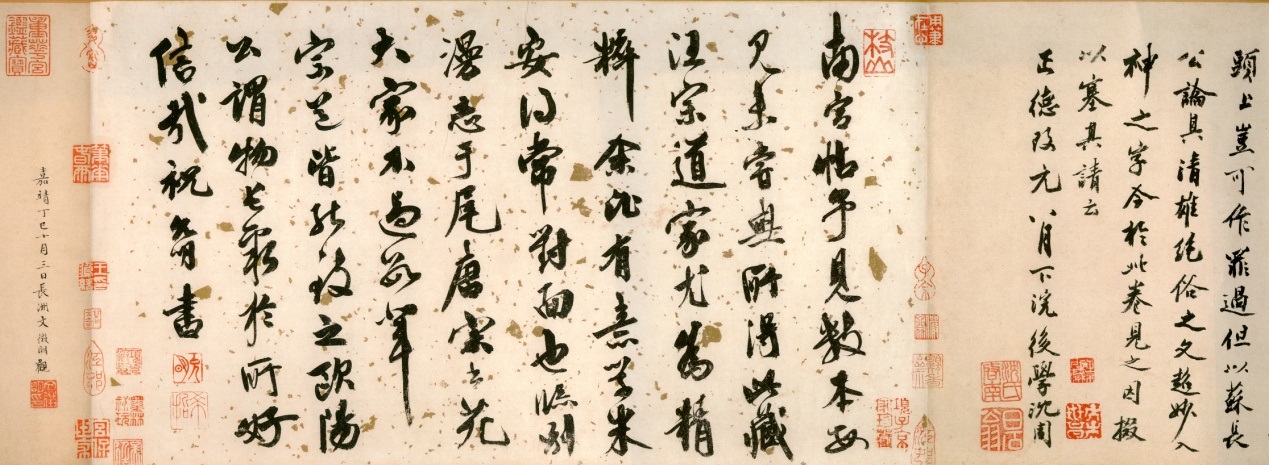 頭上豈可作罪過但以蘇長
公論其清雄絕俗之文超妙入
神之字今於此卷見之因掇
以塞其請云
正德改元八月下浣後學沈周
南宮帖予見數本
所得此藏
汪宗道家尤為精
粹余比有意學米
安得常對面也臨別
漫志于尾唐宋書苑
大家不過數輩
宗道皆能致之歐陽
公謂物聚於所好
信哉祝允明書
嘉靖丁巳十月三日長洲文徵明觀